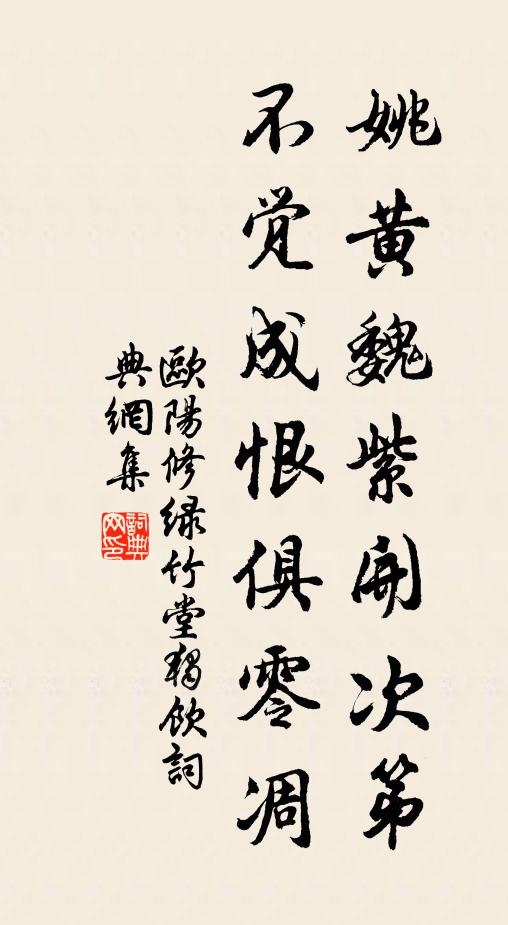 姚黃魏紫開次第
不觉成恨俱零凋
歐陽修绿竹堂獨飲詞
典網集
詞典
网印